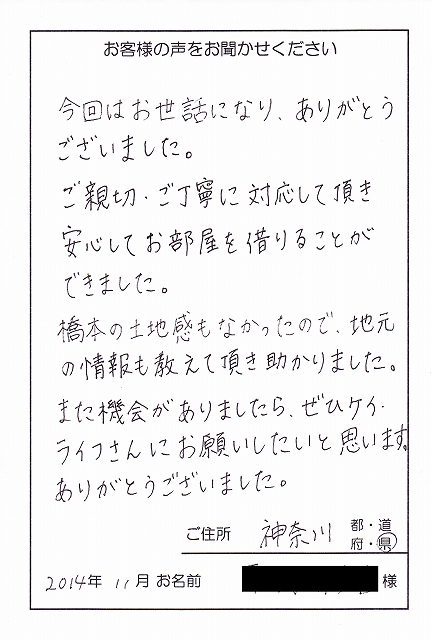 お客様の声をお聞かせください
今回はお世話になり、ありがとう
ございました。
ご親切・ご丁寧に対応して頂き
安心してお部屋を借りることが
できました。
橋本の土地感もなかったので、地元
の情報も教えて頂き助かりました。
また機会がありましたら、ぜひケイ・
ライフさんにお願いしたいと思います。
ありがとうございました。
ご住所 神奈川 都・道
府・県
2014年 11月 お名前 様